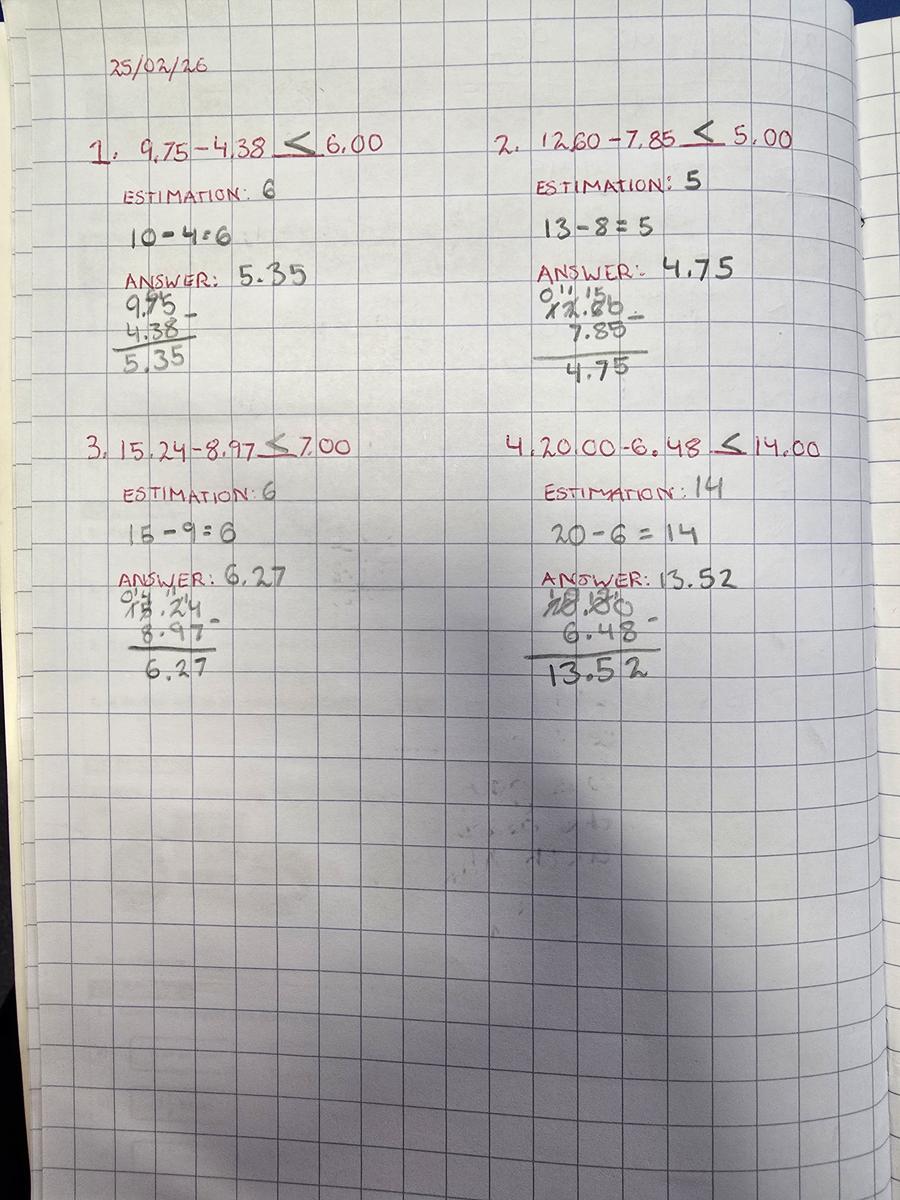 25/02/26
1. 9.75-4.38 < 6.00
ESTIMATION: 6
10-4=6
ANSWER: 5.35
9.75 -
4.38
5.35
2. 12.60-7.85 < 5.00
ESTIMATION: 5
13-8=5
ANSWER: 4.75
0 11 15
12.60 -
7.85
4.75
3. 15.24-8.97 < 7.00
ESTIMATION: 6
15-9=6
ANSWER: 6.27
15.24 -
8.97
6.27
4. 20.00-6.48 < 14.00
ESTIMATION: 14
20-6=14
ANSWER: 13.52
6.48 -
13.52